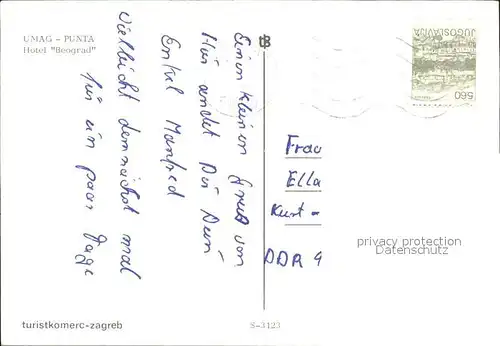 UMAG - PUNTA
Hotel "Beograd"
Einen kleinen Gruß von
Hier sendet Dir Dein
Enkel Manfred
Vielleicht demnächst mal
für ein paar Tage
Frau
Ella
Kurt-
DDR 9
JUGOSLAVIJA
5,60
privacy protection
Datenschutz
turistkomerc-zagreb
S-3123